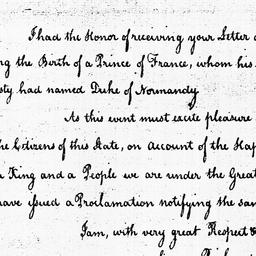 I had the Honor of receiving your Letter
ing the Birth of a Prince of France, whom his
sty had named Duke of Normandy
As this event must excite pleasure
the Citizens of this State, on account of the Hap
a King and a People we are under the Great
have issued a Proclamation notifying the sam
I am, with very great Respect &